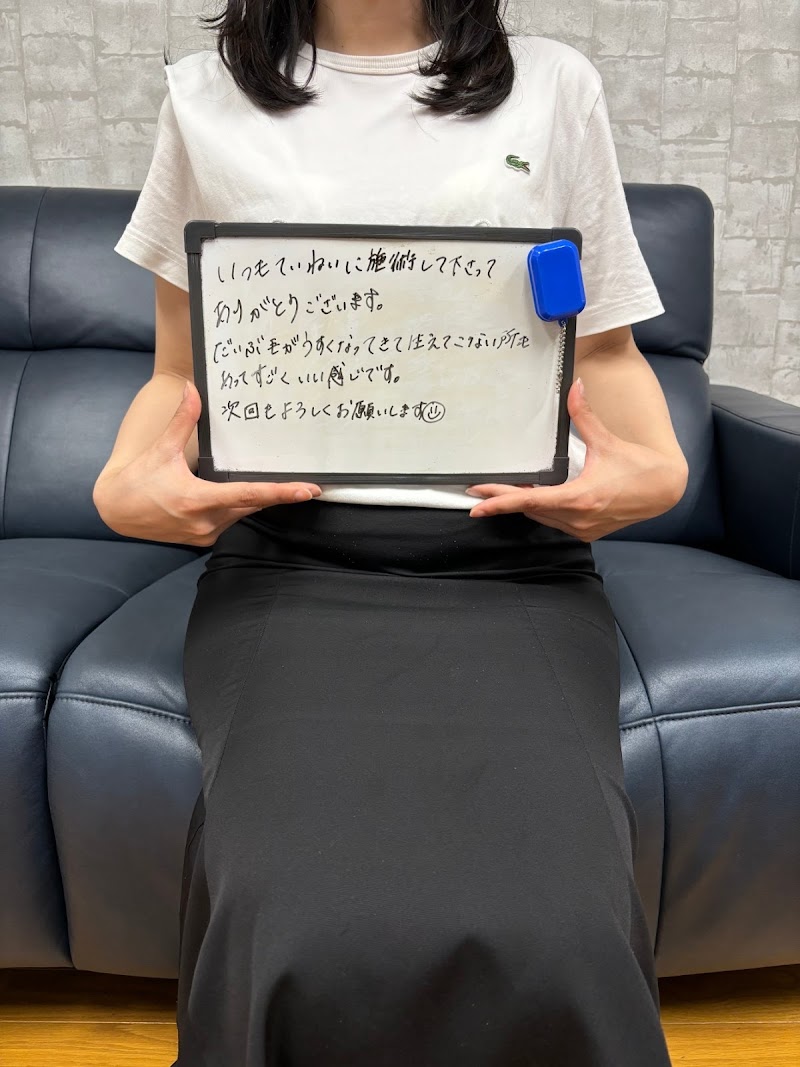 いつもていねいに施術して下さって
ありがとうございます。
だいぶ毛がうすくなってきて生えてこない所も
あってすごくいい感じです。
次回もよろしくお願いします